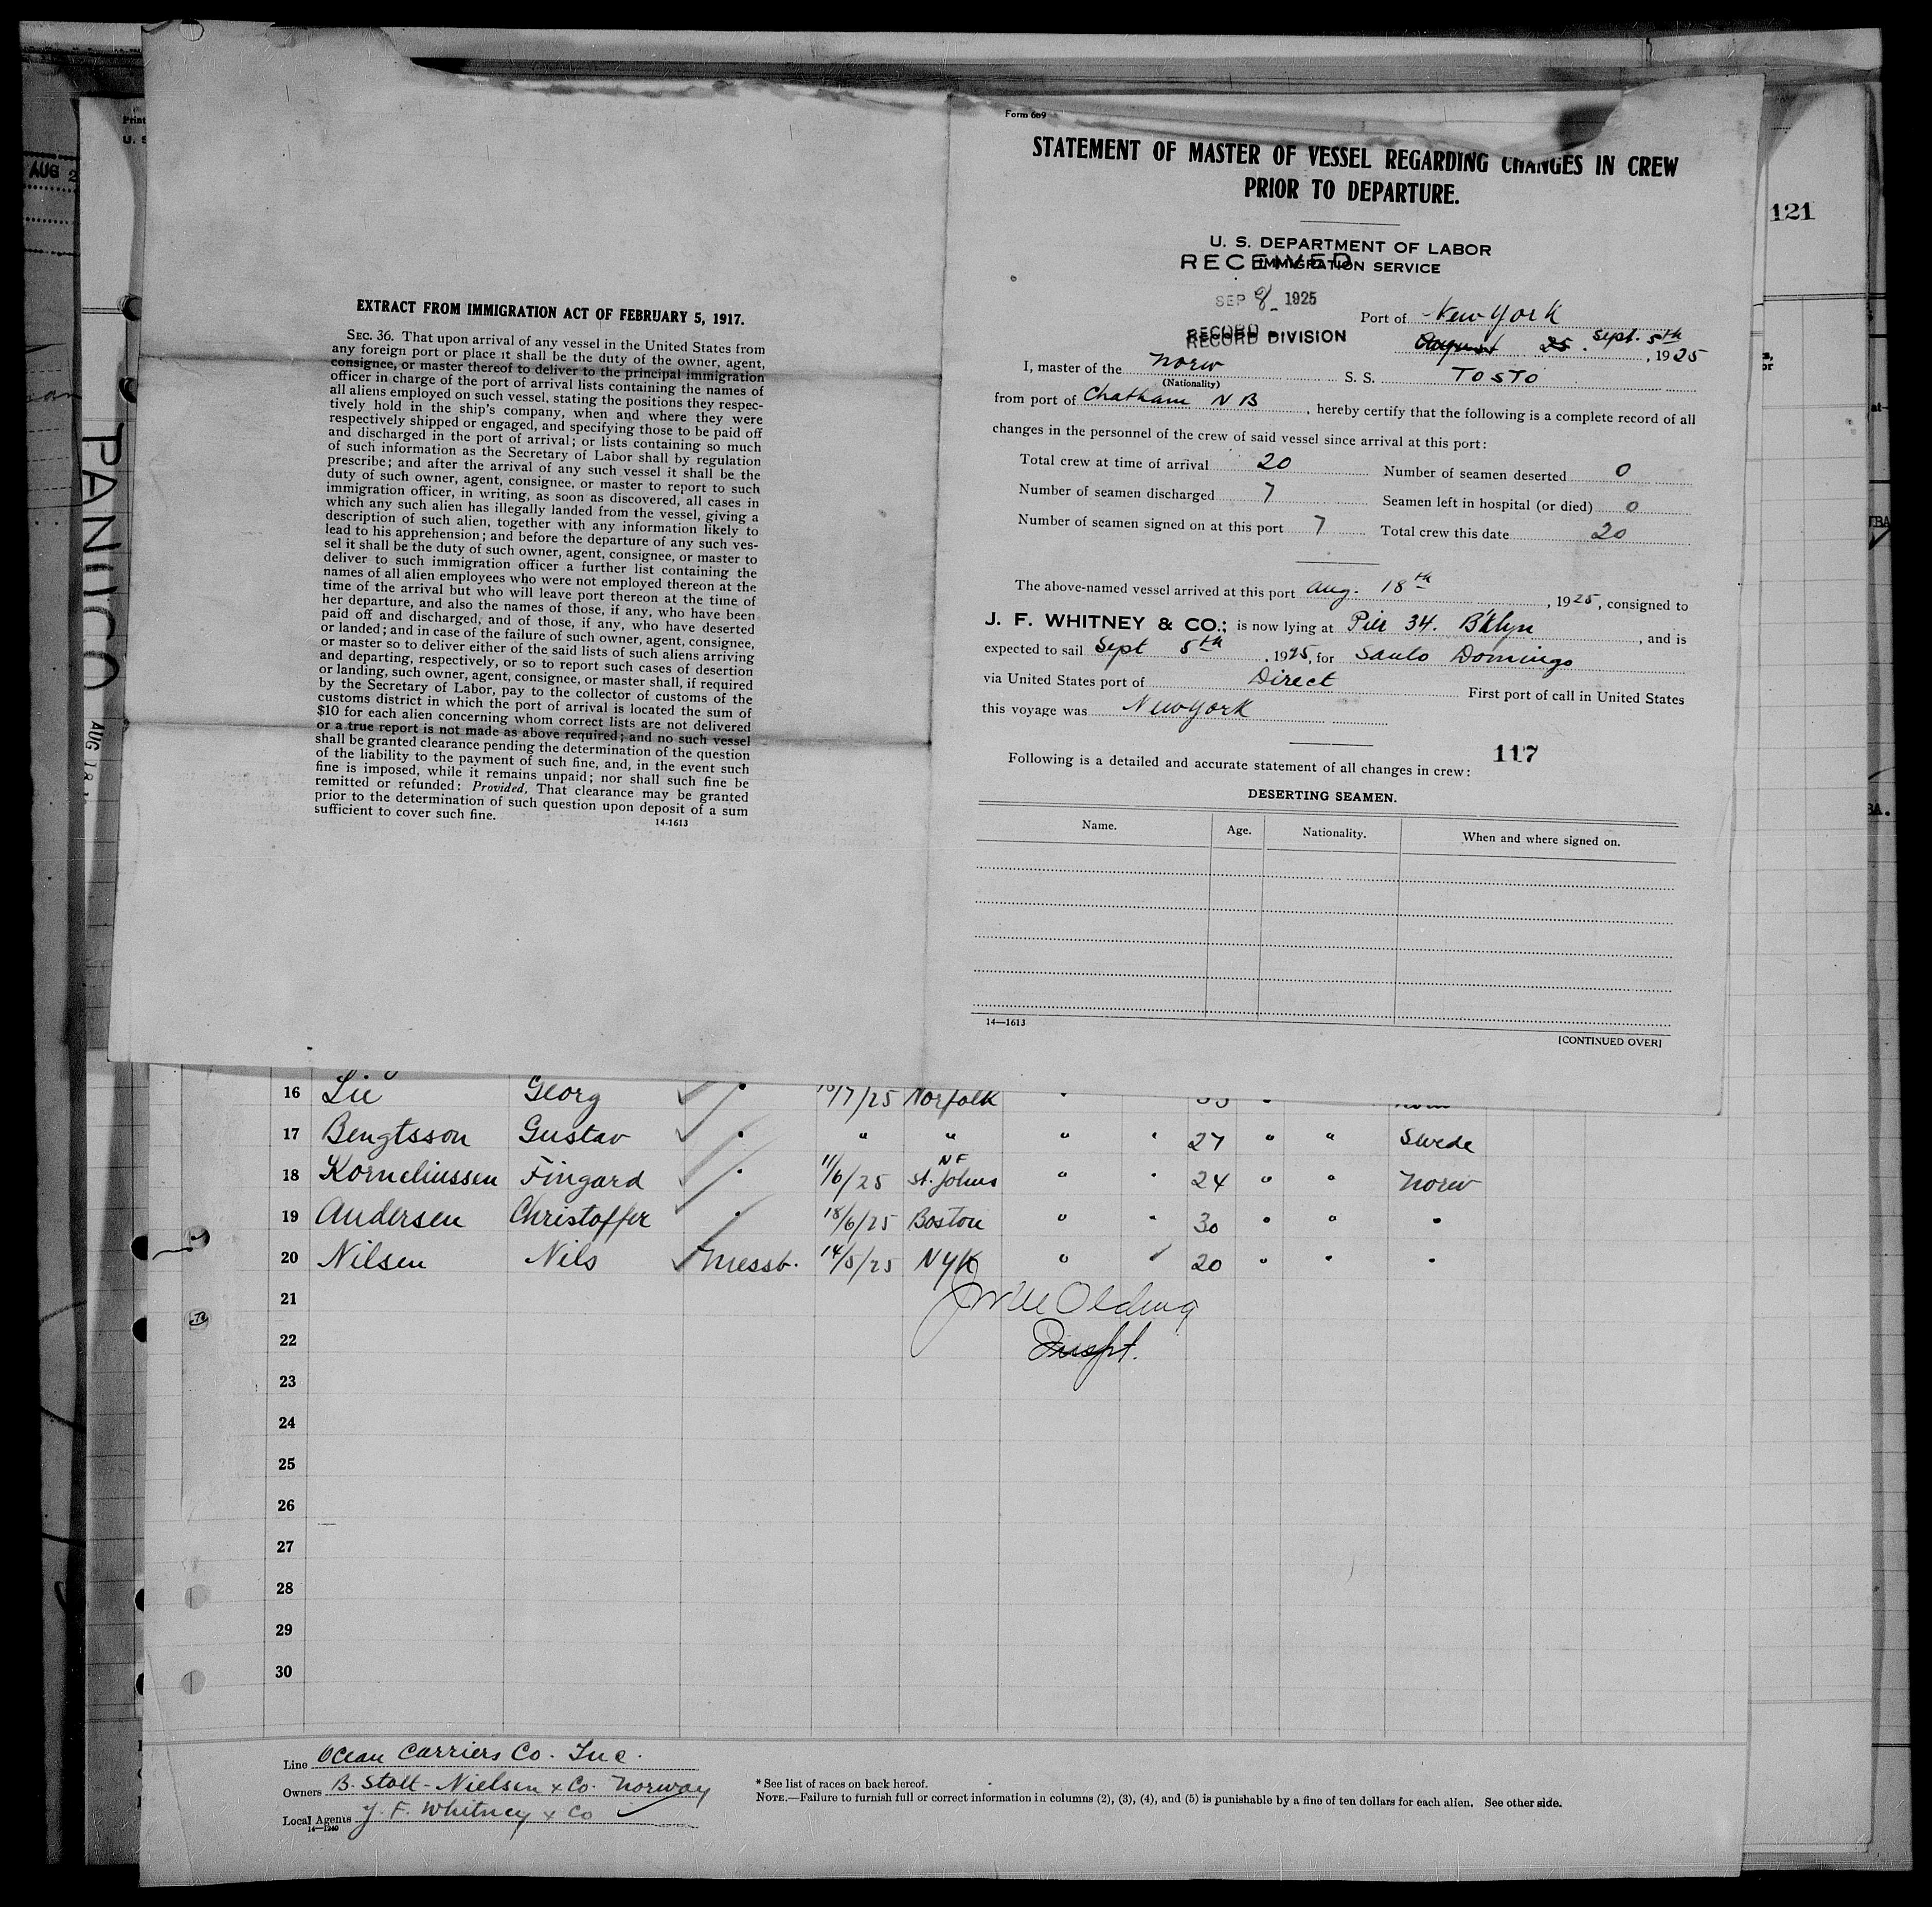 Form 689
STATEMENT OF MASTER OF VESSEL REGARDING CHANGES IN CREW
PRIOR TO DEPARTURE.
U. S. DEPARTMENT OF LABOR
IMMIGRATION SERVICE
RECEIVED
SEP 8 1925
RECORD DIVISION
Port of New York
August 25. Sept. 5th, 1925
I, master of the Norw S. S. TOSTO
(Nationality)
from port of Chatham N B, hereby certify that the following is a complete record of all
changes in the personnel of the crew of said vessel since arrival at this port:
Total crew at time of arrival 20 Number of seamen deserted 0
Number of seamen discharged 7 Seamen left in hospital (or died) 0
Number of seamen signed on at this port 7 Total crew this date 20
The above-named vessel arrived at this port Aug. 18th, 1925, consigned to
J. F. WHITNEY & CO.; is now lying at Pier 34. B'klyn, and is
expected to sail Sept 5th, 1925, for Santo Domingo
via United States port of Direct First port of call in United States
this voyage was New York
117
Following is a detailed and accurate statement of all changes in crew:
DESERTING SEAMEN.
Name. Age. Nationality. When and where signed on.
14—1613
[CONTINUED OVER]
EXTRACT FROM IMMIGRATION ACT OF FEBRUARY 5, 1917.
SEC. 36. That upon arrival of any vessel in the United States from
any foreign port or place it shall be the duty of the owner, agent,
consignee, or master thereof to deliver to the principal immigration
officer in charge of the port of arrival lists containing the names of
all aliens employed on such vessel, stating the positions they respec-
tively hold in the ship's company, when and where they were
respectively shipped or engaged, and specifying those to be paid off
and discharged in the port of arrival; or lists containing so much
of such information as the Secretary of Labor shall by regulation
prescribe; and after the arrival of any such vessel it shall be the
duty of such owner, agent, consignee, or master to report to such
immigration officer, in writing, as soon as discovered, all cases in
which any such alien has illegally landed from the vessel, giving a
description of such alien, together with any information likely to
lead to his apprehension; and before the departure of any such ves-
sel it shall be the duty of such owner, agent, consignee, or master to
deliver to such immigration officer a further list containing the
names of all alien employees who were not employed thereon at the
time of the arrival but who will leave port thereon at the time of
her departure, and also the names of those, if any, who have been
paid off and discharged, and of those, if any, who have deserted
or landed; and in case of the failure of such owner, agent, consignee,
or master so to deliver either of the said lists of such aliens arriving
and departing, respectively, or so to report such cases of desertion
or landing, such owner, agent, consignee, or master shall, if required
by the Secretary of Labor, pay to the collector of customs of the
customs district in which the port of arrival is located the sum of
$10 for each alien concerning whom correct lists are not delivered
or a true report is not made as above required; and no such vessel
shall be granted clearance pending the determination of the question
of the liability to the payment of such fine, and, in the event such
fine is imposed, while it remains unpaid; nor shall such fine be
remitted or refunded: Provided, That clearance may be granted
prior to the determination of such question upon deposit of a sum
sufficient to cover such fine.
14-1613
121
AUG 2
PANUCO
AUG 18
16 Lie Georg 10/7/25 Norfolk
17 Bengtsson Gustav " " " " 27 " " Swede
18 Korneliussen Fingard 11/6/25 St. Johns NF " " 24 " " Norw
19 Andersen Christoffer " 18/6/25 Boston " " 30 " " "
20 Nilsen Nils Messb. 14/5/25 NYK " " 20 " " "
21
22 Inspt.
23
24
25
26
27
28
29
30
Line Ocean Carriers Co. Inc.
Owners B. Stolt-Nielsen & Co. Norway
Local Agents J. F. Whitney & Co
14—1240
* See list of races on back hereof.
NOTE.—Failure to furnish full or correct information in columns (2), (3), (4), and (5) is punishable by a fine of ten dollars for each alien. See other side.